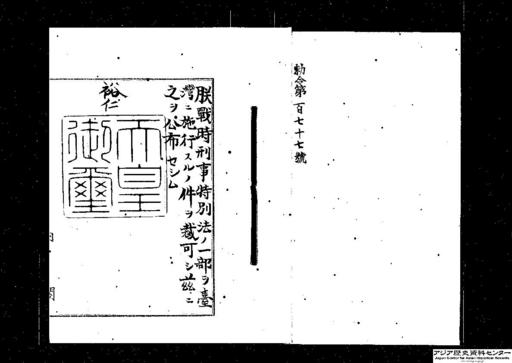 勅令第百七十七號
朕戰時刑事特別法ノ一部ヲ臺
灣ニ施行スルノ件ヲ裁可シ茲ニ
之ヲ公布セシム
裕仁
天皇
御璽
内閣
アジア歴史資料センター
Japan Center for Asian Historical Records